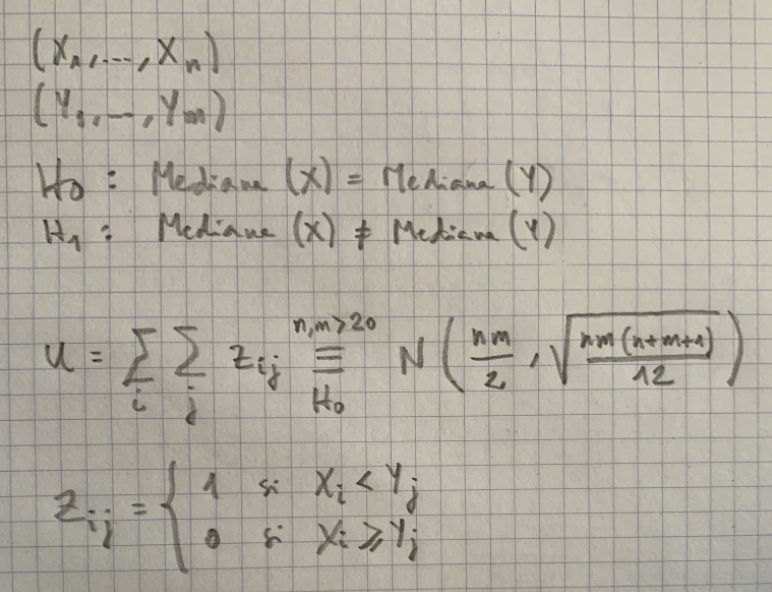 (X₁,...,Xₙ)
(Y₁,...,Yₘ)
H₀ : Mediana (X) = Mediana (Y)
H₁ : Mediana (X) ≠ Mediana (Y)
U = ∑ᵢ ∑ⱼ Zᵢⱼ ≡ (n,m>20; H₀) N ( nm/2 , √(nm(n+m+1)/12) )
Zᵢⱼ = { 1 si Xᵢ < Yⱼ
0 si Xᵢ ⩾ Yⱼ